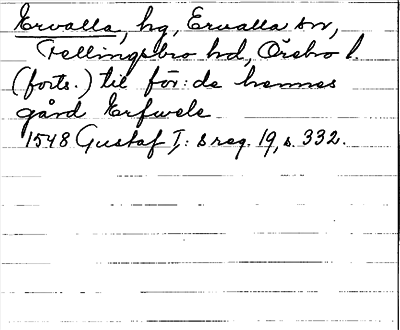 Ervalla, hg, Ervalla sn,
Fellingsbro hd, Örebro l.
(forts.) til för:de hennes
gård Erfwele
1548 Gustaf I: s reg. 19, s. 332.